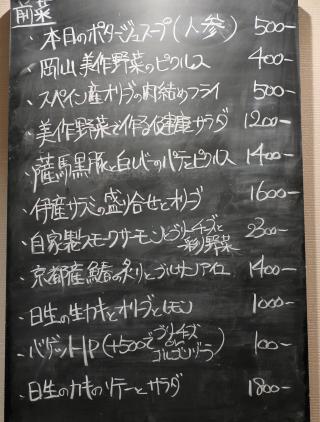 前菜
・本日のポタージュスープ(人参) 500-
・岡山美作野菜のピクルス 400-
・スペイン産オリーブの肉詰めフライ 500-
・美作野菜で作る健康サラダ 1200-
・薩摩黒豚と白レバーのパテとピクルス 1400-
・伊産サラミの盛り合せとオリーブ 1600-
・自家製スモークサーモンとブリーチーズと彩り野菜 2300-
・京都産鰆の炙りとゴルゴンアイユ 1400-
・日生の生カキとオリーブとレモン 1000-
・バゲット1P(+500でブリーチーズ or ゴルゴンゾーラ) 100-
・日生のカキのソテーとサラダ 1800-